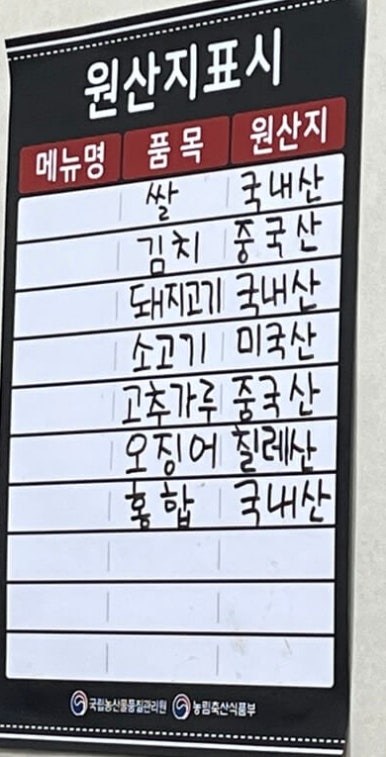 원산지표시
메뉴명 품목 원산지
쌀 국내산
김치 중국산
돼지고기 국내산
소고기 미국산
고추가루 중국산
오징어 칠레산
홍합 국내산
국립농산물품질관리원 농림축산식품부